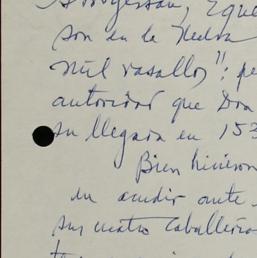 son en la Nueva
mil vasallos": pe
autoridad que Don
su llegada en 153
Bien hicieron
en acudir ante
sus cuatro caballero